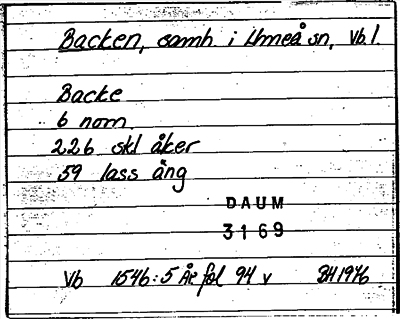 Backen, samh. i Umeå sn, Vb.l.
Backe
6 nom.
226 skl åker
59 lass äng
DAUM
3169
Vb 1546:5 Åe fol 94 v